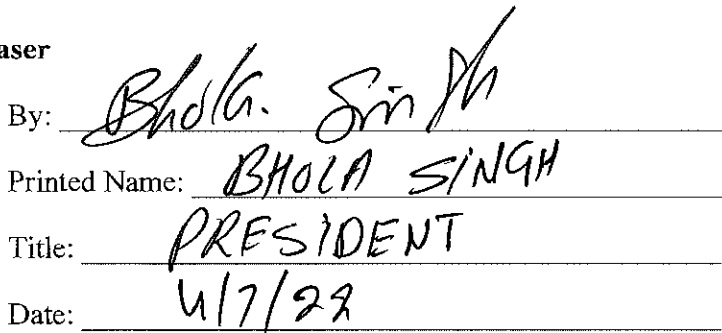 aser
By: Bhola Singh
Printed Name: BHOLA SINGH
Title: PRESIDENT
Date: 4/7/22